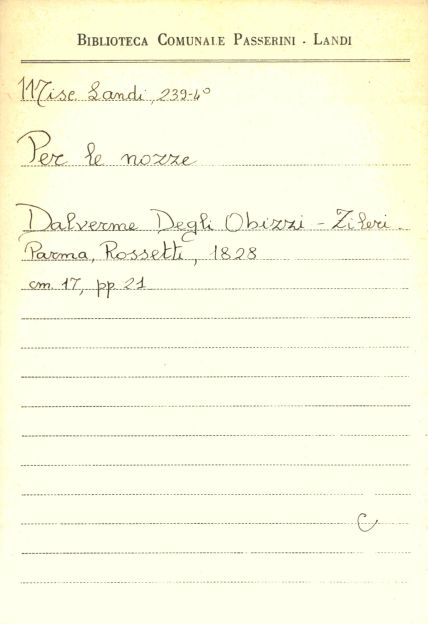 BIBLIOTECA COMUNALE PASSERINI - LANDI
Misc. Landi, 239-4°
Per le nozze
Dalverme Degli Obizzi - Zileri.
Parma, Rossetti, 1828
cm. 17, pp. 21
C